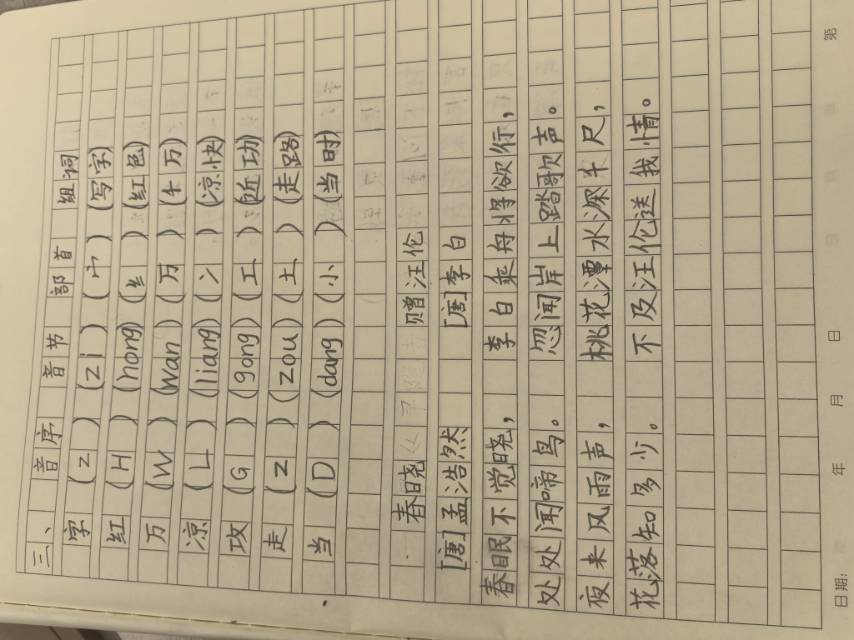 三、 音序 音节 部首 组词
字(Z)(zi)(宀)(写字)
红(H)(hong)(纟)(红色)
万(W)(wan)(万)(千万)
凉(L)(liang)(冫)(凉快)
攻(G)(gong)(工)(近功)
走(Z)(zou)(土)(走路)
当(D)(dang)(小)(当时)
春晓 赠汪伦
[唐]孟浩然 [唐]李白
春眠不觉晓, 李白乘舟将欲行,
处处闻啼鸟。 忽闻岸上踏歌声。
夜来风雨声, 桃花潭水深千尺,
花落知多少。 不及汪伦送我情。
日期: 年 月 日 第